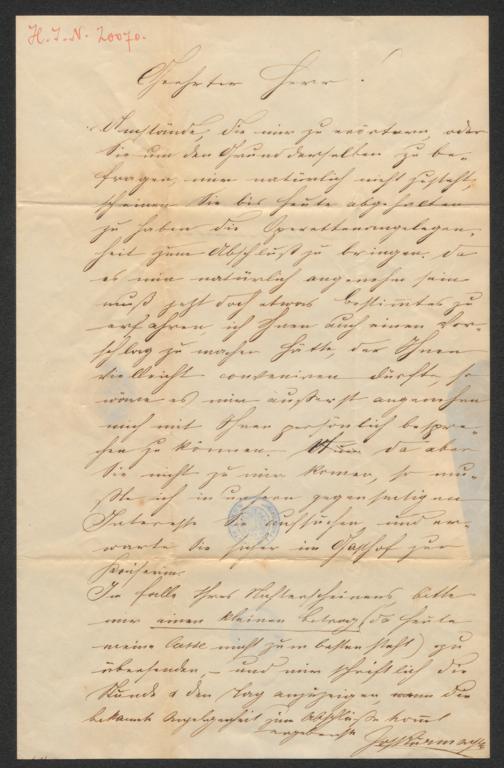 H. I. N. 20070.
Geehrter Herr!
Umstände, die mir zu erörtern, oder
Sie um den Grund derselben zu be-
fragen, mir natürlich nicht zusteht,
scheinen Sie bis heute abgehalten
zu haben die Operettenangelegen-
heit zum Abschluß zu bringen. Da
es mir natürlich angenehm sein
muß jetzt doch etwas bestimmtes zu
erfahren, ich Ihnen auch einen Vor-
schlag zu machen hätte, der Ihnen
vielleicht conveniren dürfte, so
wäre es mir äusserst angenehm
mich mit Ihnen persönlich bespre-
chen zu können. – da aber
Sie nicht zu mir komen, so mu-
ßte ich in unserm gegenseitigen
Interesse Sie aufsuchen und er-
warte Sie hier im Gasthof zur
Kaiserin.
Im falle Ihres Nichterscheinens bitte
mir einen kleinen Betrag (da heute
meine Casse nicht zum besten steht) zu
übersenden – und mir schriftlich die
Stunde & den Tag anzuzeigen, wann die
bekannte Angelegenheit zum Abschluße komt
ergebenst